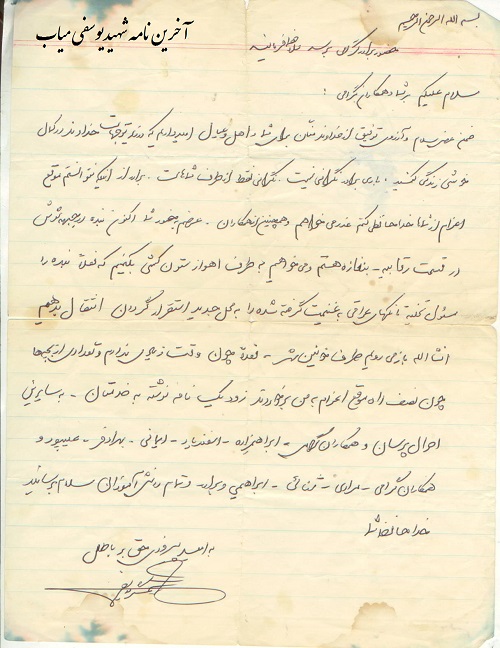 بسم الله الرحمن الرحیم
آخرین نامه شهید یوسفی میاب
حضور برادر گرامی
سلام علیکم بر شما و همکاران گرامی :
ضمن عرض سلام و آرزوی توفیق از خداوند منان برای شما و اهل و عیال امیدوارم که در زیر توجهات خداوند در کمال
خوشی زندگی کنید. باری برادر نگرانی نیست. نگرانی فقط از طرف شماست. برادر از اینکه نتوانستم موقع
اعزام از شما خداحافظی کنم عذر می‌خواهم و همچنین از همکاران. عرضم بحضور شما اکنون بنده در جبهه شوش
در قسمت - هستم و می‌خواهیم به طرف اهواز ستون کشی بکنیم که فعلا بنده را
مسئول تانکهای عراقی به غنیمت گرفته شده را به محل جدید استقرار گردان انتقال بدهیم
انشاالله بازمی رویم طرف خونین شهر - فعلا چون وقت زیادی ندارم و تعدادی از بچه‌ها
چون نصف راه موقع اعزام به من برخوردند زود یک نامه نوشته به خدمتتان - به سایرین
احوال پرسان و همکاران گرامی - ابراهیم زاده - اسفندیار - ایمانی - بهزادفر - علیپور و
همکاران گرامی - مرادی - - ابراهیمی و برادر و تمام دانش آموزان سلام برسانید
خداحافظ شما
به امید پیروزی حق بر باطل